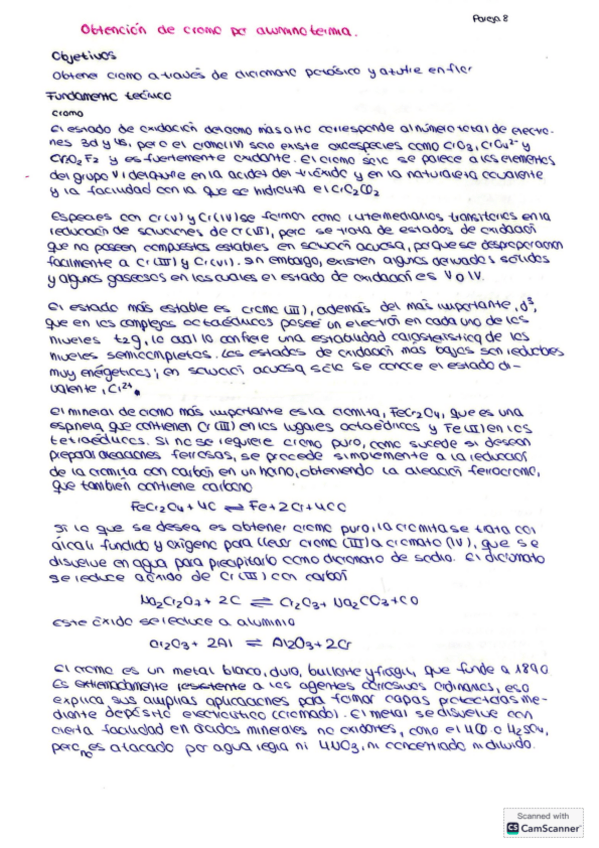 Pareja 8
Obtención de cromo por aluminotermia.
Objetivos
Obtener cromo a través de dicromato potásico y azufre en flor
Fundamento teórico
cromo
El estado de oxidación del cromo más alto corresponde al número total de electro-
nes 3d y 4s, pero el cromo(VI) solo existe oxoespecies como CrO3, CrO4²⁻ y
CrO2F2 y es fuertemente oxidante. El cromo sólo se parece a los elementos
del grupo VI del azufre en la acidez del trióxido y en la naturaleza covalente
y la facilidad con la que se hidroliza el CrO2Cl2
Especies con Cr(V) y Cr(IV) se forman como intermediarios transitorios en la
reducción de soluciones de Cr(VI), pero se trata de estados de oxidación
que no poseen compuestos estables en solución acuosa, porque se desproporcionan
fácilmente a Cr(III) y Cr(VI). Sin embargo, existen algunos derivados sólidos
y algunos gaseosos en los cuales el estado de oxidación es V o IV.
El estado más estable es cromo (III), además del más importante, d³,
que en los complejos octaédricos posee un electrón en cada uno de los
niveles t2g, lo cual le confiere una estabilidad característica de los
niveles semicompletos. Los estados de oxidación más bajos son reductores
muy energéticos; en solución acuosa sólo se conoce el estado di-
valente, Cr²⁺.
El mineral de cromo más importante es la cromita, FeCr2O4, que es una
espinela que contienen Cr(III) en los lugares octaédricos y Fe(II) en los
tetraédricos. Si no se requiere cromo puro, como sucede si desean
preparar aleaciones ferrosas, se procede simplemente a la reducción
de la cromita con carbón en un horno, obteniendo la aleación ferrocromo,
que también contiene carbono
FeCr2O4 + 4C ⇌ Fe + 2Cr + 4CO
Si lo que se desea es obtener cromo puro, la cromita se trata con
álcali fundido y oxígeno para llevar cromo (III) a cromato (IV), que se
disuelve en agua para precipitarlo como dicromato de sodio. El dicromato
se reduce a óxido de Cr(III) con carbón
Na2Cr2O7 + 2C ⇌ Cr2O3 + Na2CO3 + CO
Este óxido se reduce a aluminio
Cr2O3 + 2Al ⇌ Al2O3 + 2Cr
El cromo es un metal blanco, duro, brillante y frágil, que funde a 1890
Es extremadamente resistente a los agentes corrosivos ordinarios, eso
explica sus amplias aplicaciones para formar capas protectoras me-
diante depósito electrolítico (cromado). El metal se disuelve con
cierta facilidad en ácidos minerales no oxidantes, como el HCl o H2SO4,
pero no es atacado por agua regia ni HNO3, ni concentrado ni diluido.
Scanned with
CS CamScanner